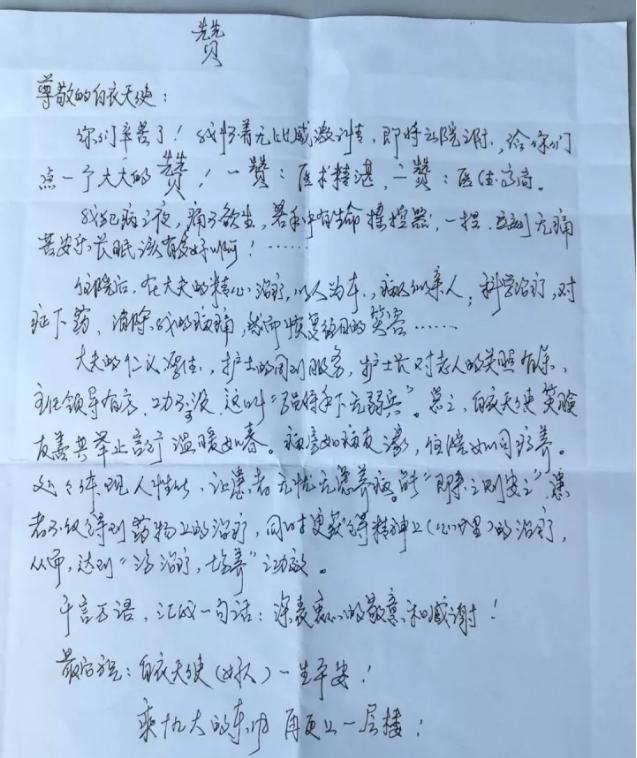 赞
尊敬的白衣天使：
你们辛苦了！我怀着无比感激之情，即将出院之时，给你们
点一个大大的赞！一赞：医术精湛，二赞：医德高尚。
我犯病之夜，痛不欲生，若手中有生命操控器，一摁，立刻无痛
苦安乐长眠该有多好啊！……
住院后，在大夫的精心治疗，以人为本，病人似亲人，科学治疗，对
症下药，消除我的病痛，然而恢复往日的笑容……
大夫的仁义，护士的周到服务，护士长对老人的关照有加，
主任领导有方，功不可没，这叫“强将手下无弱兵”。总之，白衣天使笑脸
友善其举止言行温暖如春。病房如，住院如同疗养。
处处体现人性化，让患者无忧无虑养病。所“即来之则安之”患
者不仅得到药物上的治疗，同时更获得精神上（心理）的治疗，
从而，达到“治疗，培养”之功效。
千言万语，汇成一句话：深表衷心的敬意和感谢！
最后祝：白衣天使（）一生平安！
乘十九大的东风 再更上一层楼！